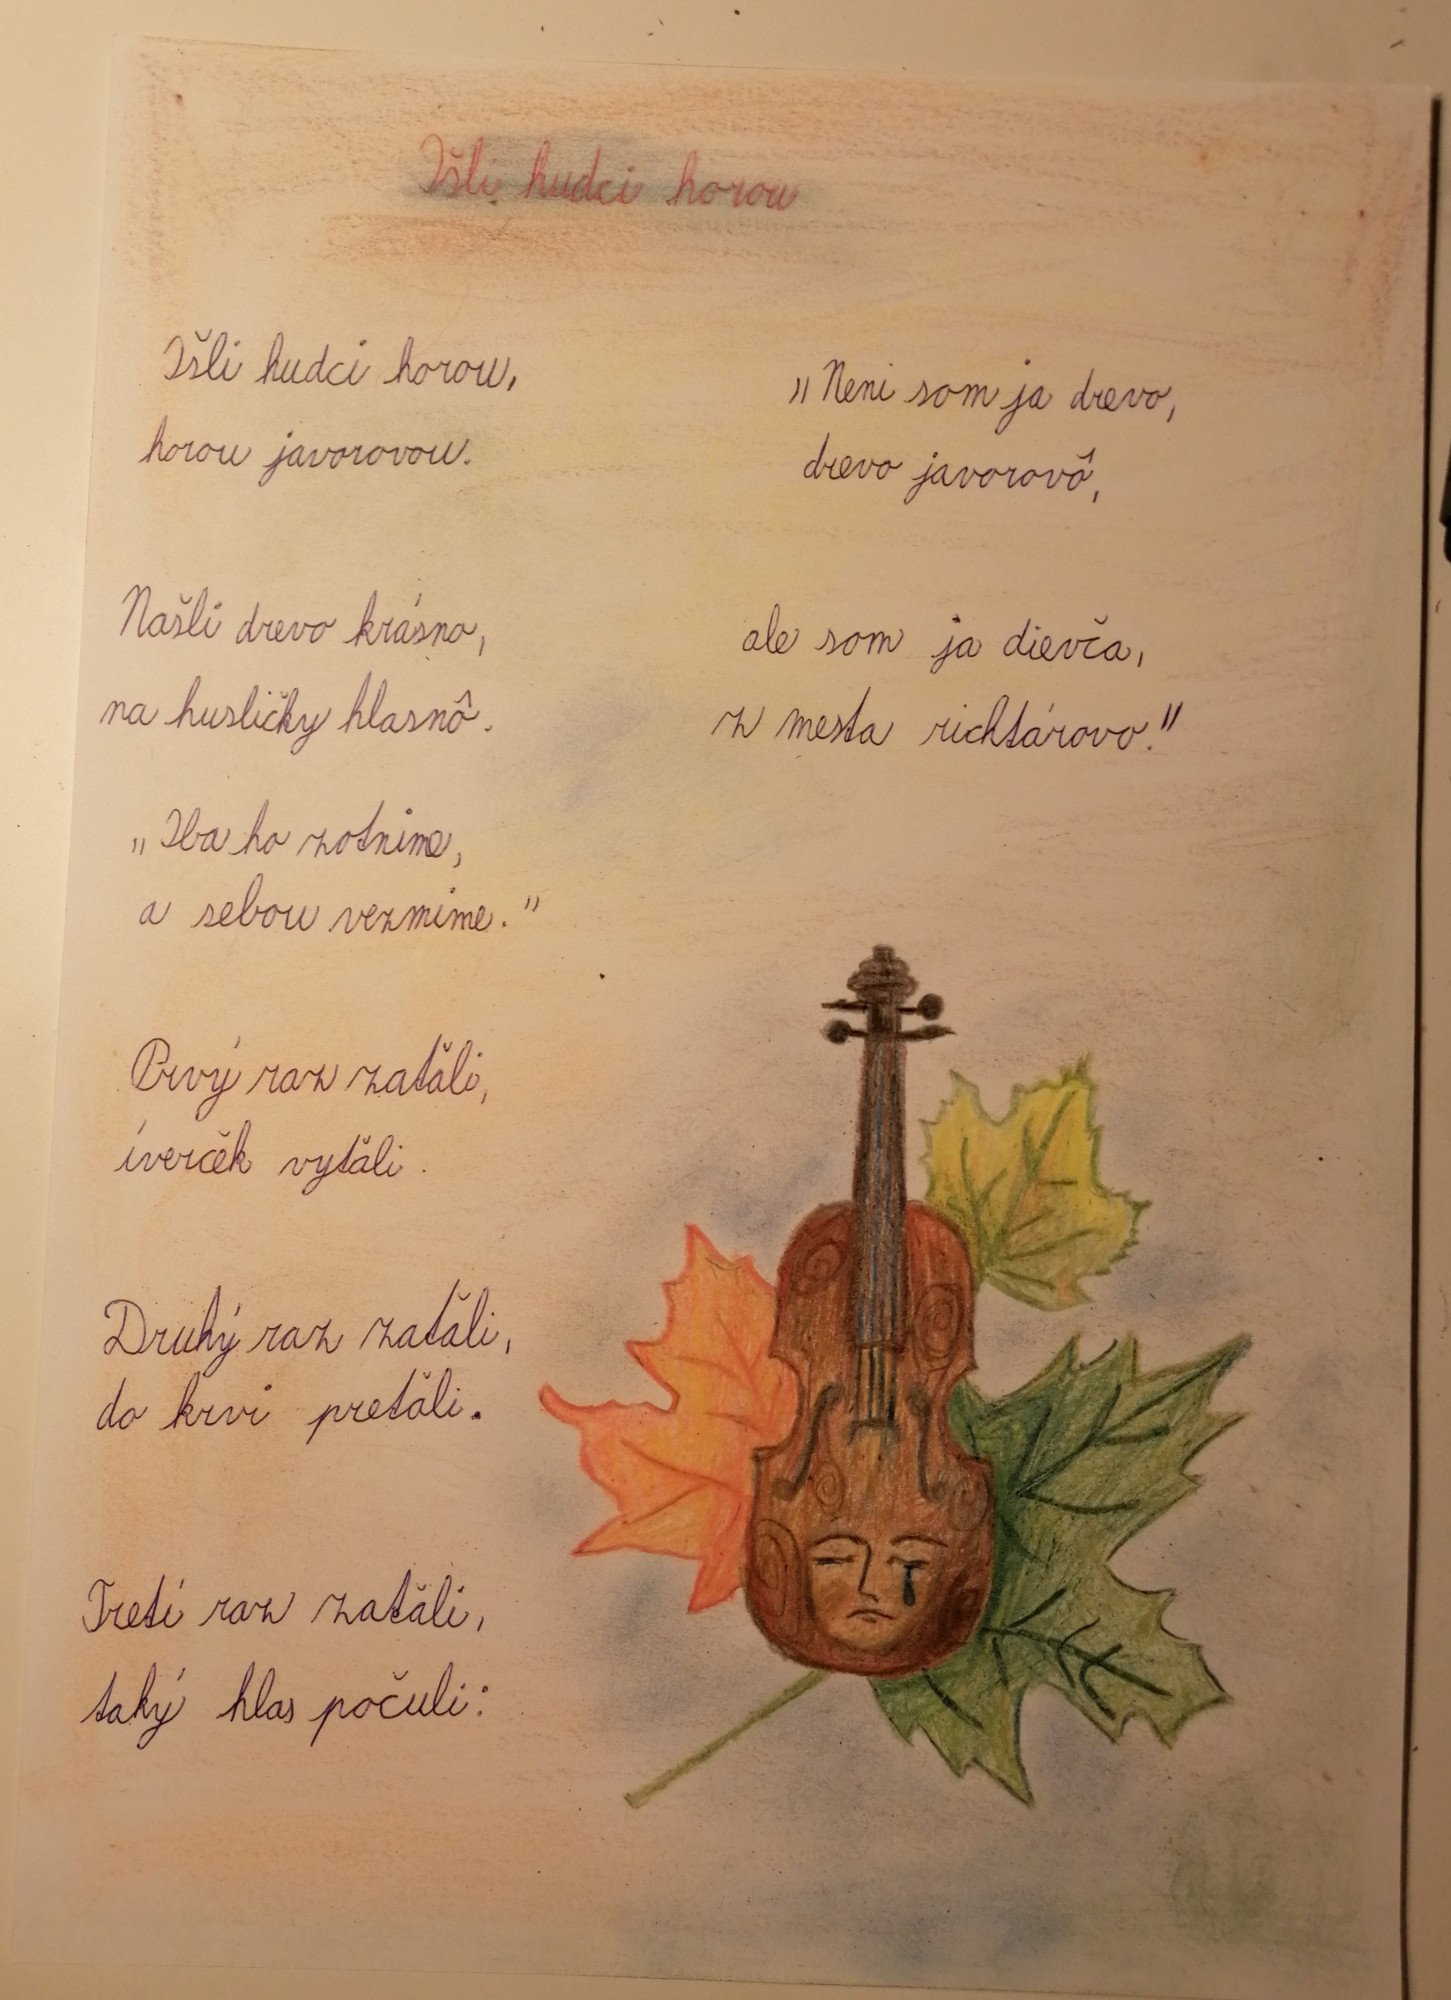 Išli hudci horou
Išli hudci horou,
horou javorovou.
Našli drevo krásno,
na husličky hlasnô.
„Iba ho zotnime,
a sebou vezmime."
Prvý raz zaťäli,
íverček vyťäli.
Druhý raz zaťäli,
do krvi preťäli.
Tretí raz zaťäli,
taký hlas počuli:
„Neni som ja drevo,
drevo javorovô,
ale som ja dievča,
z mesta richtárovo."